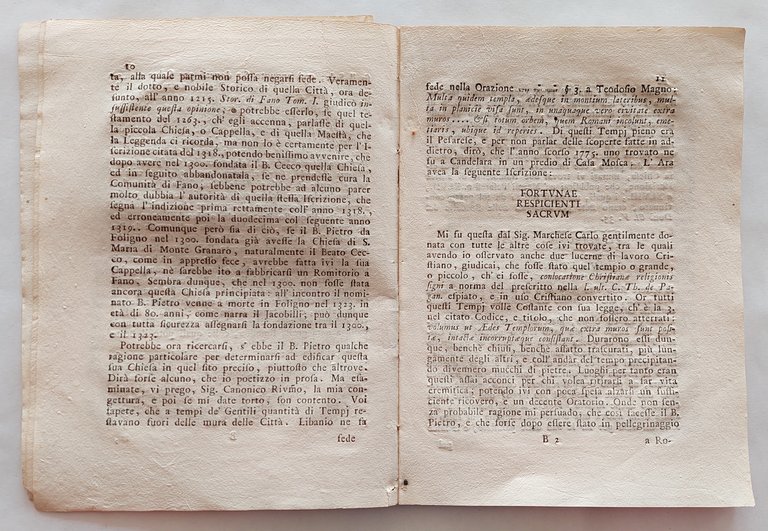 10
ta, alla quale parmi non possa negarsi fede. Veramen-
te il dotto, e nobile Storico di quella Città, ora de-
funto, all'anno 1215. Stor. di Fano Tom. I. giudicò in-
sussistente questa opinione; e potrebbe esserlo, se quel te-
stamento del 1263., ch'egli accenna, parlasse di quel-
la piccola Chiesa, o Cappella, e di quella Maestà, che
la Leggenda ci ricorda, ma non lo è certamente per l'I-
scrizione citata del 1318., potendo benissimo avvenire, che
dopo avere nel 1300. fondata il B. Cecco quella Chiesa,
ed in seguito abbandonatala, se ne prendesse cura la
Comunità di Fano; sebbene potrebbe ad alcuno parer
molto dubbia l'autorità di quella stessa Iscrizione, che
segna l'indizione prima rettamente coll'anno 1318.,
ed erroneamente poi la duodecima col seguente anno
1319.. Comunque però sia di ciò, se il B. Pietro da
Foligno nel 1300. fondata già avesse la Chiesa di S.
Maria di Monte Granaro, naturalmente il Beato Cec-
co, come in appresso fece, avrebbe fatta ivi la sua
Cappella, nè sarebbe ito a fabbricarsi un Romitorio a
Fano. Sembra dunque, che nel 1300. non fosse stata
ancora questa Chiesa principiata: all'incontro il nomi-
nato B. Pietro venne a morte in Foligno nel 1323. in
età di 80. anni, come narra il Jacobilli; può dunque
con tutta sicurezza assegnarsi la fondazione tra il 1300.,
e il 1323.
Potrebbe ora ricercarsi, s'ebbe il B. Pietro qualche
ragione particolare per determinarsi ad edificar questa
sua Chiesa in quel sito preciso, piuttosto che altrove.
Dirà forse alcuno, che io poetizzo in prosa. Ma esa-
minate, vi prego, Sig. Canonico Rivino, la mia con-
gettura, e poi se mi date torto, son contento. Voi
sapete, che a tempi de' Gentili quantità di Tempj re-
stavano fuori delle mura delle Città. Libanio ne fa
fede
11
fede nella Orazione § 3. a Teodosio Magno:
Multa quidem templa, ædesque in montium lateribus, mul-
ta in planicie visa sunt, in unaquaque vero civitate extra
muros.... Et si totum orbem, quem Romani incolunt, eme-
tiaris, ubique id reperies. Di questi Tempj pieno era
il Pesarese, e per non parlar delle scoperte fatte in ad-
dietro, dirò, che l'anno scorso 1775. uno trovato ne
fu a Candelara in un predio di Casa Mosca. L'Ara
avea la seguente Iscrizione:
FORTVNAE
RESPICIENTI
SACRVM
Mi fu questa dal Sig. Marchese Carlo gentilmente do-
nata con tutte le altre cose ivi trovate, tra le quali
avendo io osservato anche due lucerne di lavoro Cri-
stiano, giudicai, che fosse stato quel tempio o grande,
o piccolo, ch'ei fosse, conlocatione Christianæ religionis
signi a norma del prescritto nella l. ult. C. Th. de Pa-
gan. espiato, e in uso Cristiano convertito. Or tutti
questi Tempj volle Costante colla sua legge, ch'è la 3.
nel citato Codice, e titolo, che non fossero atterrati:
volumus ut Ædes Templorum, quæ extra muros sunt posi-
tæ, intactæ incorruptæque consistant. Durarono essi dun-
que, benchè chiusi, benchè affatto trascurati, più lun-
gamente degli altri, e coll'andar del tempo precipitan-
do divennero mucchi di pietre. Luoghi per tanto eran
questi assai acconci per chi volea ritirarsi a far vita
eremitica; potendo ivi con poca spesa alzarsi un suffi-
ciente ricovero, e un decente Oratorio. Onde non sen-
za probabile ragione mi persuado, che così facesse il B.
Pietro, e che forse dopo essere stato in pellegrinaggio
B 2
a Ro-